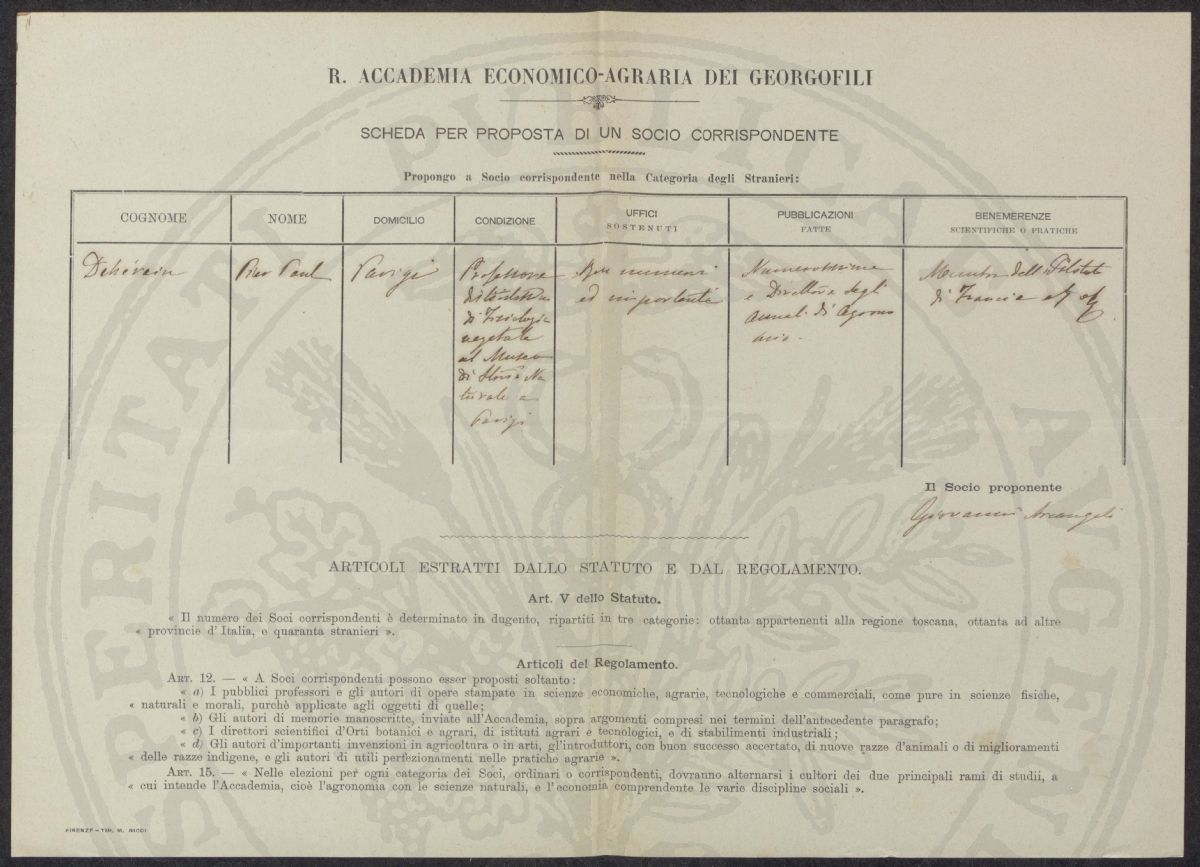 R. ACCADEMIA ECONOMICO-AGRARIA DEI GEORGOFILI
SCHEDA PER PROPOSTA DI UN SOCIO CORRISPONDENTE
Propongo a Socio corrispondente nella Categoria degli Stranieri:
COGNOME
NOME
DOMICILIO
CONDIZIONE
UFFICI
SOSTENUTI
PUBBLICAZIONI
FATTE
BENEMERENZE
SCIENTIFICHE O PRATICHE
Dehérain
Pier Paul
Parigi
Professore
di Fisiologia
vegetale
al Museo
di Storia Na
turale a
Parigi
numerosi
ed importanti
Numerosissime
e Direttore degli
Annali di Agrono
mia.
Membro dell'Istituto
di Francia
Il Socio proponente
Giovanni Arcangeli
ARTICOLI ESTRATTI DALLO STATUTO E DAL REGOLAMENTO.
Art. V dello Statuto.
« Il numero dei Soci corrispondenti è determinato in dugento, ripartiti in tre categorie: ottanta appartenenti alla regione toscana, ottanta ad altre
« provincie d' Italia, e quaranta stranieri ».
Articoli del Regolamento.
ART. 12. — « A Soci corrispondenti possono esser proposti soltanto:
« a) I pubblici professori e gli autori di opere stampate in scienze economiche, agrarie, tecnologiche e commerciali, come pure in scienze fisiche,
« naturali e morali, purchè applicate agli oggetti di quelle;
« b) Gli autori di memorie manoscritte, inviate all'Accademia, sopra argomenti compresi nei termini dell'antecedente paragrafo;
« c) I direttori scientifici d'Orti botanici e agrari, di istituti agrari e tecnologici, e di stabilimenti industriali;
« d) Gli autori d'importanti invenzioni in agricoltura o in arti, gl'introduttori, con buon successo accertato, di nuove razze d'animali o di miglioramenti
« delle razze indigene, e gli autori di utili perfezionamenti nelle pratiche agrarie ».
ART. 15. — « Nelle elezioni per ogni categoria dei Soci, ordinari o corrispondenti, dovranno alternarsi i cultori dei due principali rami di studii, a
« cui intende l'Accademia, cioè l'agronomia con le scienze naturali, e l'economia comprendente le varie discipline sociali ».
FIRENZE — TIP. M. RICCI